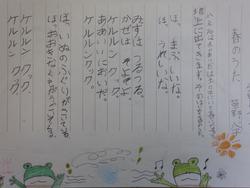 春のうた
草野心平
かえるは冬のあいだは土の中にいて春になると
地上に出てきます。そのはじめての
ほっ　まぶしいな。
ほっ　うれしいな。
みずは　つるつる。
かぜは　そよそよ。
ケルルン　クック。
ああいいにおいだ。
ケルルン　クック。
ほっ　いぬのふぐりがさいている。
ほっ　おおきなくもがうごいてくる。
ケルルン　クック。
ケルルン　クック。